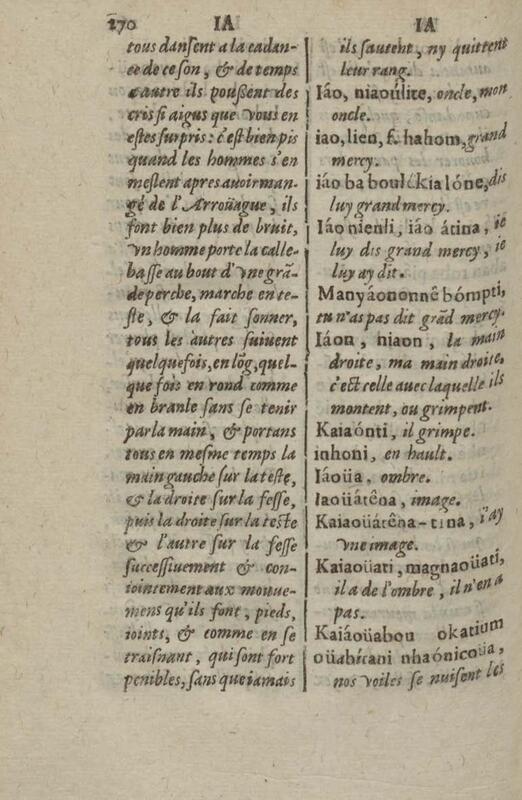 270 IA IA
tous dansent a la cadan-
ce de ce son, & de temps
a autre ils poussent des
cris si aigus que vous en
estes surpris: c'est bien pis
quand les hommes s'en
meslent apres auoir man-
gé de l'Arroüague, ils
font bien plus de bruit,
vn homme porte la calle-
basse au bout d'vne grã-
de perche, marche en te-
ste, & la fait sonner,
tous les àutres suiuent
quelquefois, en lõg, quel-
que fois en rond comme
en branle sans se tenir
par la main, & portans
tous en mesme temps la
main gauche sur la teste,
& la droite sur la fesse,
puis la droite sur la teste
& l'autre sur la fesse
successiuement & con-
iointement aux mouue-
mens qu'ils font, pieds,
ioints, & comme en se
traisnant, qui sont fort
penibles, sans que iamais
ils sautent, ny quittent
leur rang.
Iáo, niaoúlite, oncle, mon
oncle.
iao, lien, f. hahom, grand
mercy.
iáo ba boulékia lóne, dis
luy grand mercy.
Iáo nienli, iáo átina, ie
luy dis grand mercy, ie
luy ay dit.
Manyáononnê bómpti,
tu n'as pas dit grãd mercy.
Iáon, niaon, la main
droite, ma main droite,
c'est celle auec laquelle ils
montent, ou grimpent.
Kaiaónti, il grimpe.
inhoni, en hault.
Iáoüa, ombre.
Iaoüátêna, image.
Kaiaoüátêna-tina, i'ay
vne image.
Kaiaoüati, magnaoüati,
il a de l'ombre, il n'en a
pas.
Kaiáoüabou okatium
oüabítani nhaónicoüa,
nos voiles se nuisent les